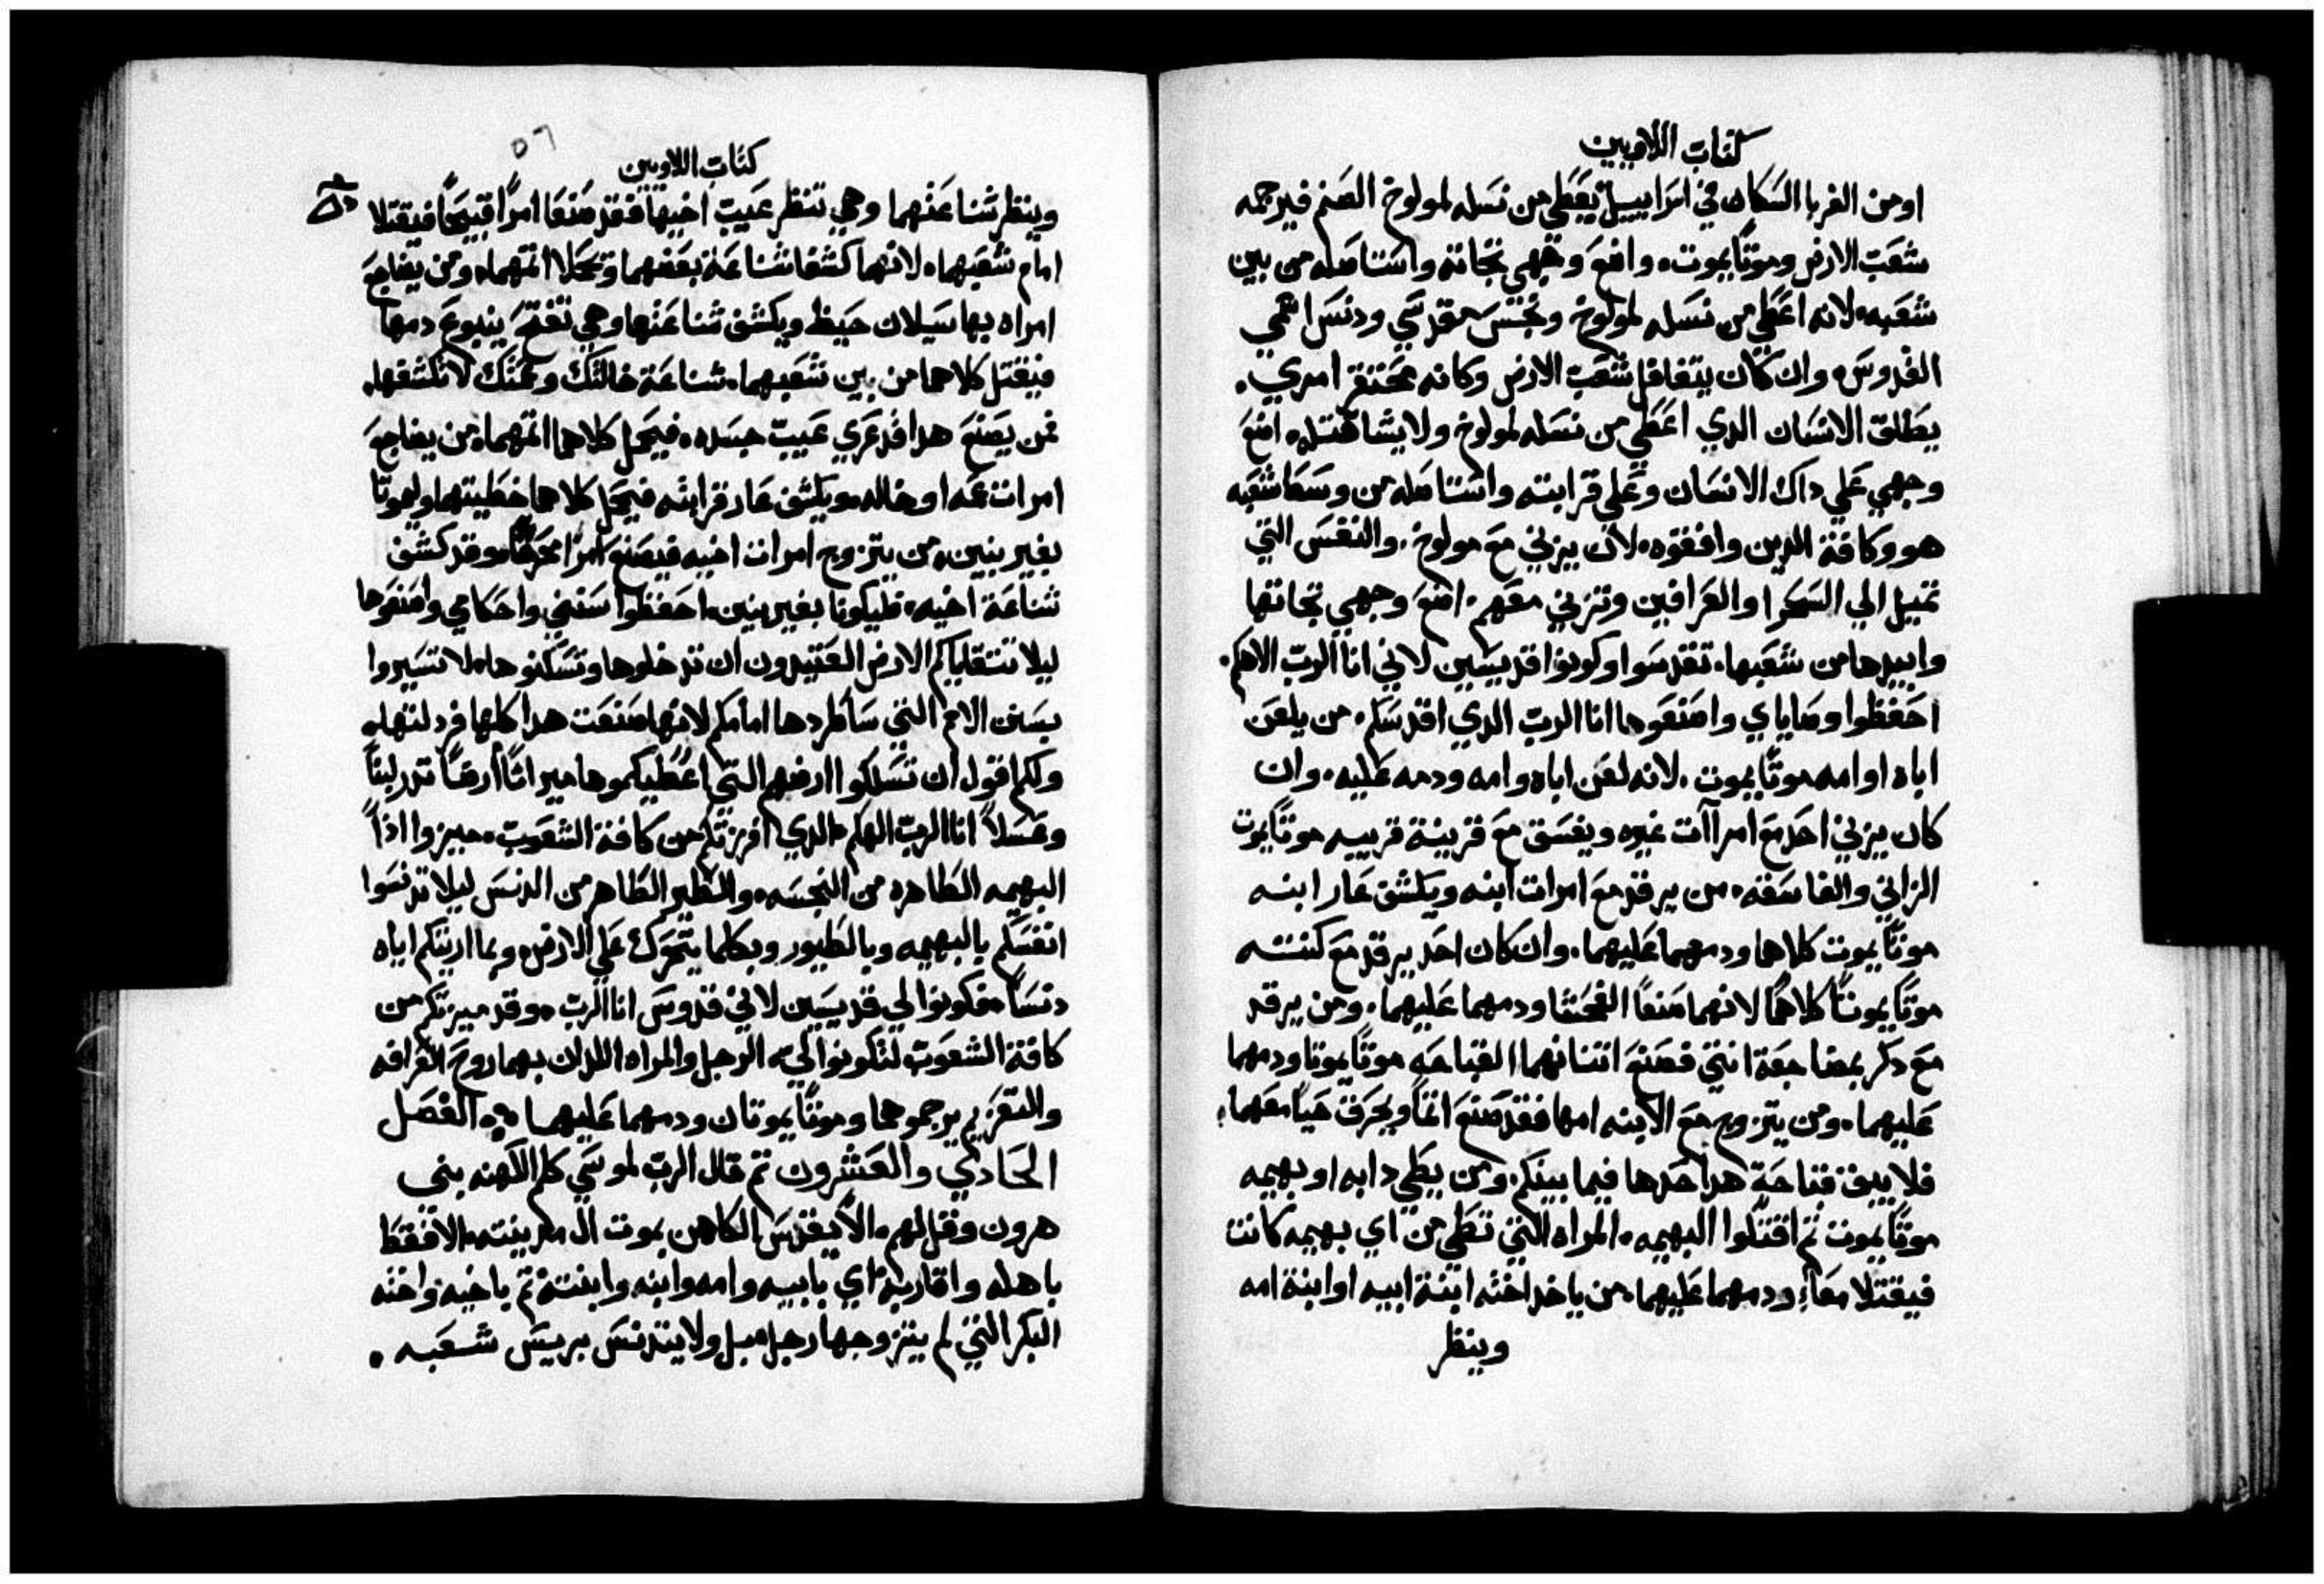 كتاب اللاويين
او من الغربا السكان في اسراييل يعطي من نسله لمولوخ الصنم فيرجمه
شعب الارض وموتًا يموت. واضع وجهي تجاته واستاصله من بين
شعبه. لانه اعطي من نسله لمولوخ ونجس مقدسي ودنس اسمي
القدوس. وان كان يتغافل شعب الارض وكانه محتقر امري.
يطلق الانسان الدي اعطي من نسله لمولوخ ولا يشا قتله. اضع
وجهي علي داك الانسان وعلي قرابته واستاصله من وسط شعبه
هو وكافة الدين وافقوه. لان يزني مع مولوخ. والنفس التي
تميل الي السحرا والعرافين وتزني معهم. اضع وجهي تجاتها
وابيدها من شعبها. تقدسوا وكونوا قديسين لاني انا الرب الاهكم.
احفظوا وصاياي واصنعوها انا الرب الدي اقدسكم. من يلعن
اباه او امه موتًا يموت. لانه لعن اباه وامه ودمه عليه. وان
كان يزني احد مع امراآت غيره ويفسق مع قرينة قريبه موتًا يموت
الزاني والفاسقه. من يرقد مع امرات ابنه ويكشف عار ابنه
موتًا يموت كلاهما ودمهما عليهما. وان كان احد يرقد مع كنته
موتًا يموتًا كلاهما لانهما صنعا الفحشا ودمهما عليهما. ومن يرقد
مع دكر بمضاجعة انتي فصنع اتنانهما القباحه موتًا يموتا ودمهما
عليهما. ومن يتزوج مع الابنه امها فقد صنع اتمًا ويحرق حيًا معهما.
فلا يبق قباحة هدا حدها فيما بينكم. ومن يطي دابه او بهيمه
موتًا يموت تم اقتلوا البهيمه. المراه التي تطي من اي بهيمه كانت
فيقتلا معًا. ودمهما عليهما. من ياخد اخته ابنة ابيه او ابنة امه
وينظر
٥٦
كتاب اللاويين
وينظر شناعتهما وهي تنظر عيب اخيها فقد صنعا امرًا قبيحًا فيقتلا
امام شعبهما. لانهما كشفا شناعة بعضهما وتحملا اتمهما. ومن يضاجع
امراه بها سيلان حيظ ويكشف شناعتها وهي تفتح ينبوع دمها
فيقتل كلاهما من بين شعبهما. شناعة خالتك وعمتك لا تكشفها.
فمن يصنع هدا قد عري عيب جسده. فيحمل كلاهما اتمهما. من يضاجع
امرات عمه او خاله. ويكشف عار قرابته فيحمل كلاهما خطيتهما وليموتا
بغير بنين. من يتزوج امرات اخيه فيصنع امرًا محرمًا. وقد كشف
شناعة اخيه. فليكونا بغير بنين. احفظوا سنني واحكامي واصنعوها
ليلا تتقاياكم الارض العتيدون ان تدخلوها وتسكنوها. لا تسيروا
بسنن الامم التي ساطردها امامكم لانها صنعت هدا كلها فردلتها.
ولكم اقول ان تسلكوا ارضهم التي اعطيكموها ميراتًا ارضًا تدر لبنًا
وعسلاً انا الرب الهكم. الدي افرزتكم من كافة الشعوب. ميزوا اذًا
البهيمه الطاهره من النجسه. والطير الطاهر من الدنس ليلا تدنسوا
انفسكم بالبهيمه وبالطيور وبكلما يتحرك علي الارض. وبما اريتكم اياه
دنسًا. فكونوا لي قديسين لاني قدوس انا الرب. وقد ميزتكم من
كافة الشعوب لتكونوا لي. الرجل والمراه اللدان بهما روح العرافه
والتعزيم يرجموهما وموتًا يموتان ودمهما عليهما. الفصل
الحادي والعشرون تم قال الرب لموسي كلم الكهنه بني
هرون وقل لهم. الا يتقدس الكاهن بموت ال مدينته. الا فقط
باهله واقاربه اي بابيه وامه وابنه وابنته تم باخيه واخته
البكر التي لم يتزوجها رجل. بل ولا يتدنس بريس شعبه.